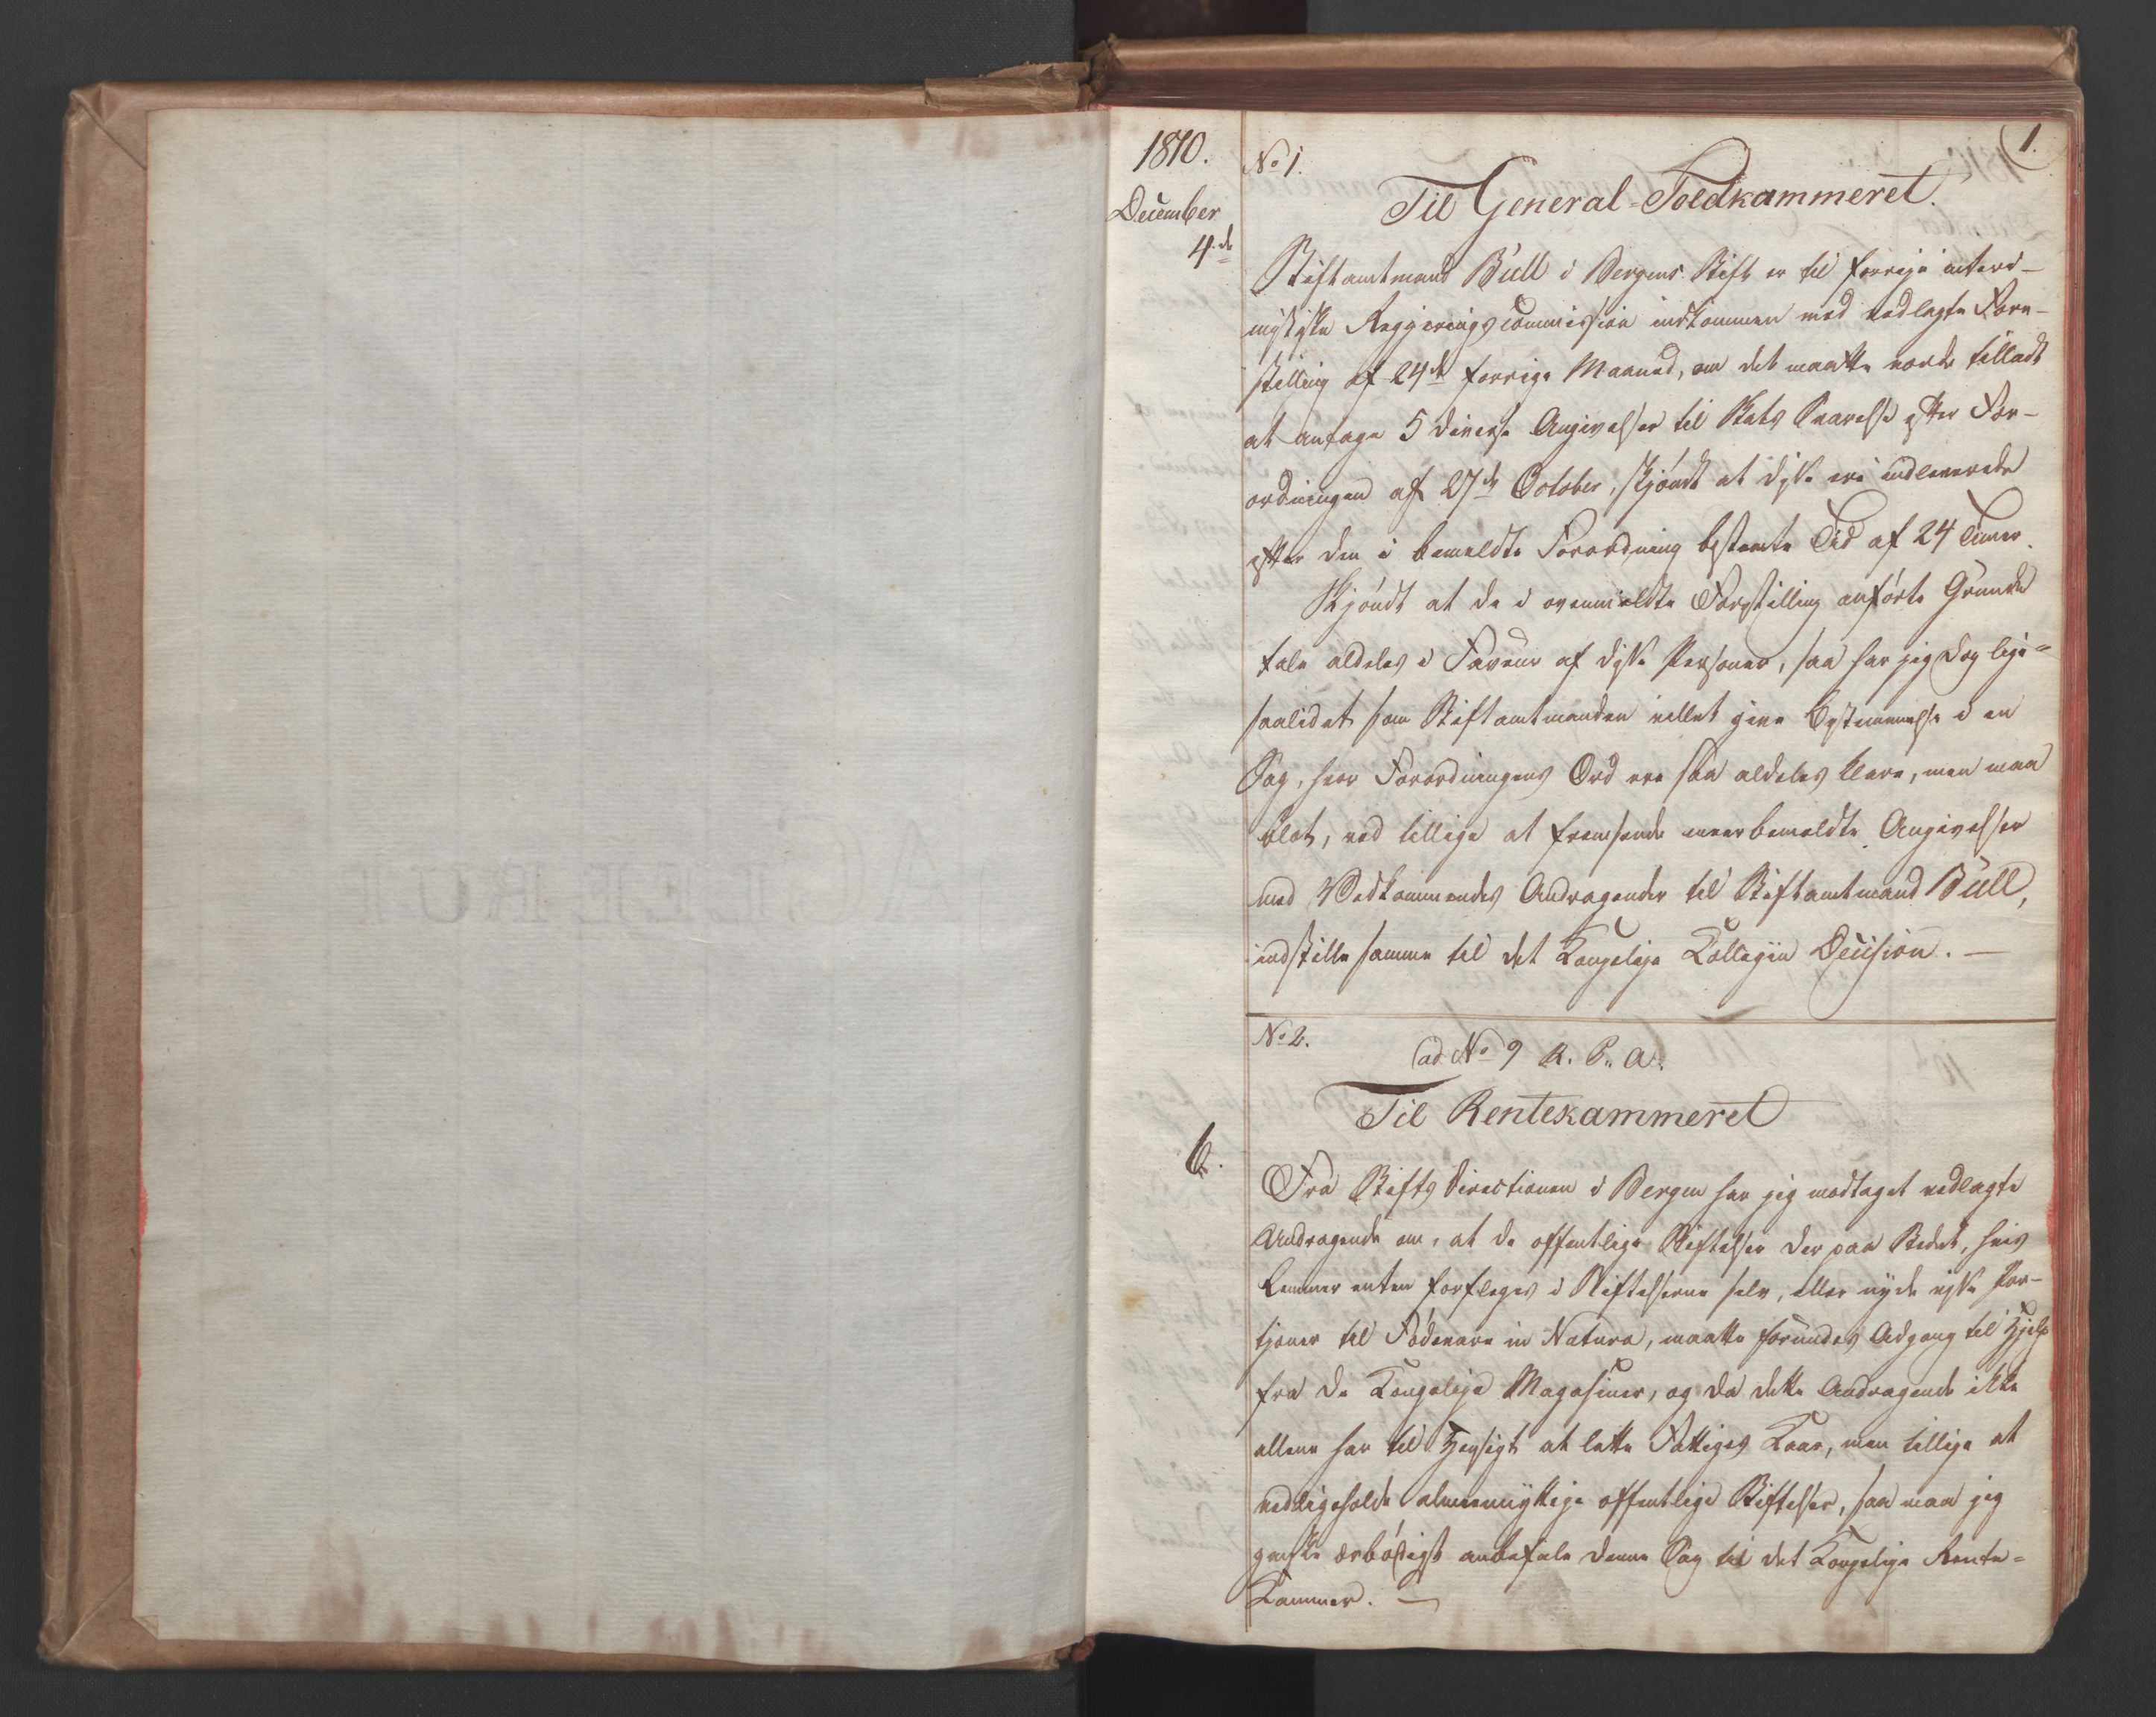 1.
1810.
December
4de
No 1.
Til General-Toldkammeret.
Stiftamtmand Bull i Bergens Stift er til forrige interi-
mistiske Regjeringscommission indkommen med vedlagte Fore-
stilling af 24de forrige Maaned, om det maatte vorde tilladt
at antage 5 diverse Angivelser til Skats Svarelse efter For-
ordningen af 27de October, skjøndt at disse ere indleverede
efter den i bemeldte Forordning bestemte Tid af 24 Timer.
Skjøndt at de i ovenmeldte Forestilling anførte Grunde
tale aldeles i Faveur af disse Personer, saa har jeg dog lige-
saalidet som Stiftamtmanden villet give Bestemmelse i en
Sag, hvor Forordningens Ord ere saa aldeles klare, men maa
blot, ved tillige at fremsende meerbemeldte Angivelser
med Vedkommendes Andragender til Stiftamtmand Bull,
indstille samme til det Kongelige Collegii Decision. —
No 2.
ad No 9 R. P. a.
Til Rentekammeret
6.
Fra Stifts Directionen i Bergen har jeg modtaget vedlagte
Andragende om, at de offentlige Stiftelser der paa Stedet, hvis
Lemmer enten forpleges i Stiftelserne selv, eller nyde visse Por-
tioner til Fødevare in Natura, maatte forundes Adgang til Hjelp
fra de Kongelige Magasiner, og da dette Andragende ikke
allene har til Hensigt at lette Fattiges Kaar, men tillige at
vedligeholde almeennyttige offentlige Stiftelser, saa maa jeg
ganske ærbødigst anbefale denne Sag til det Kongelige Rente-
Kammer. —